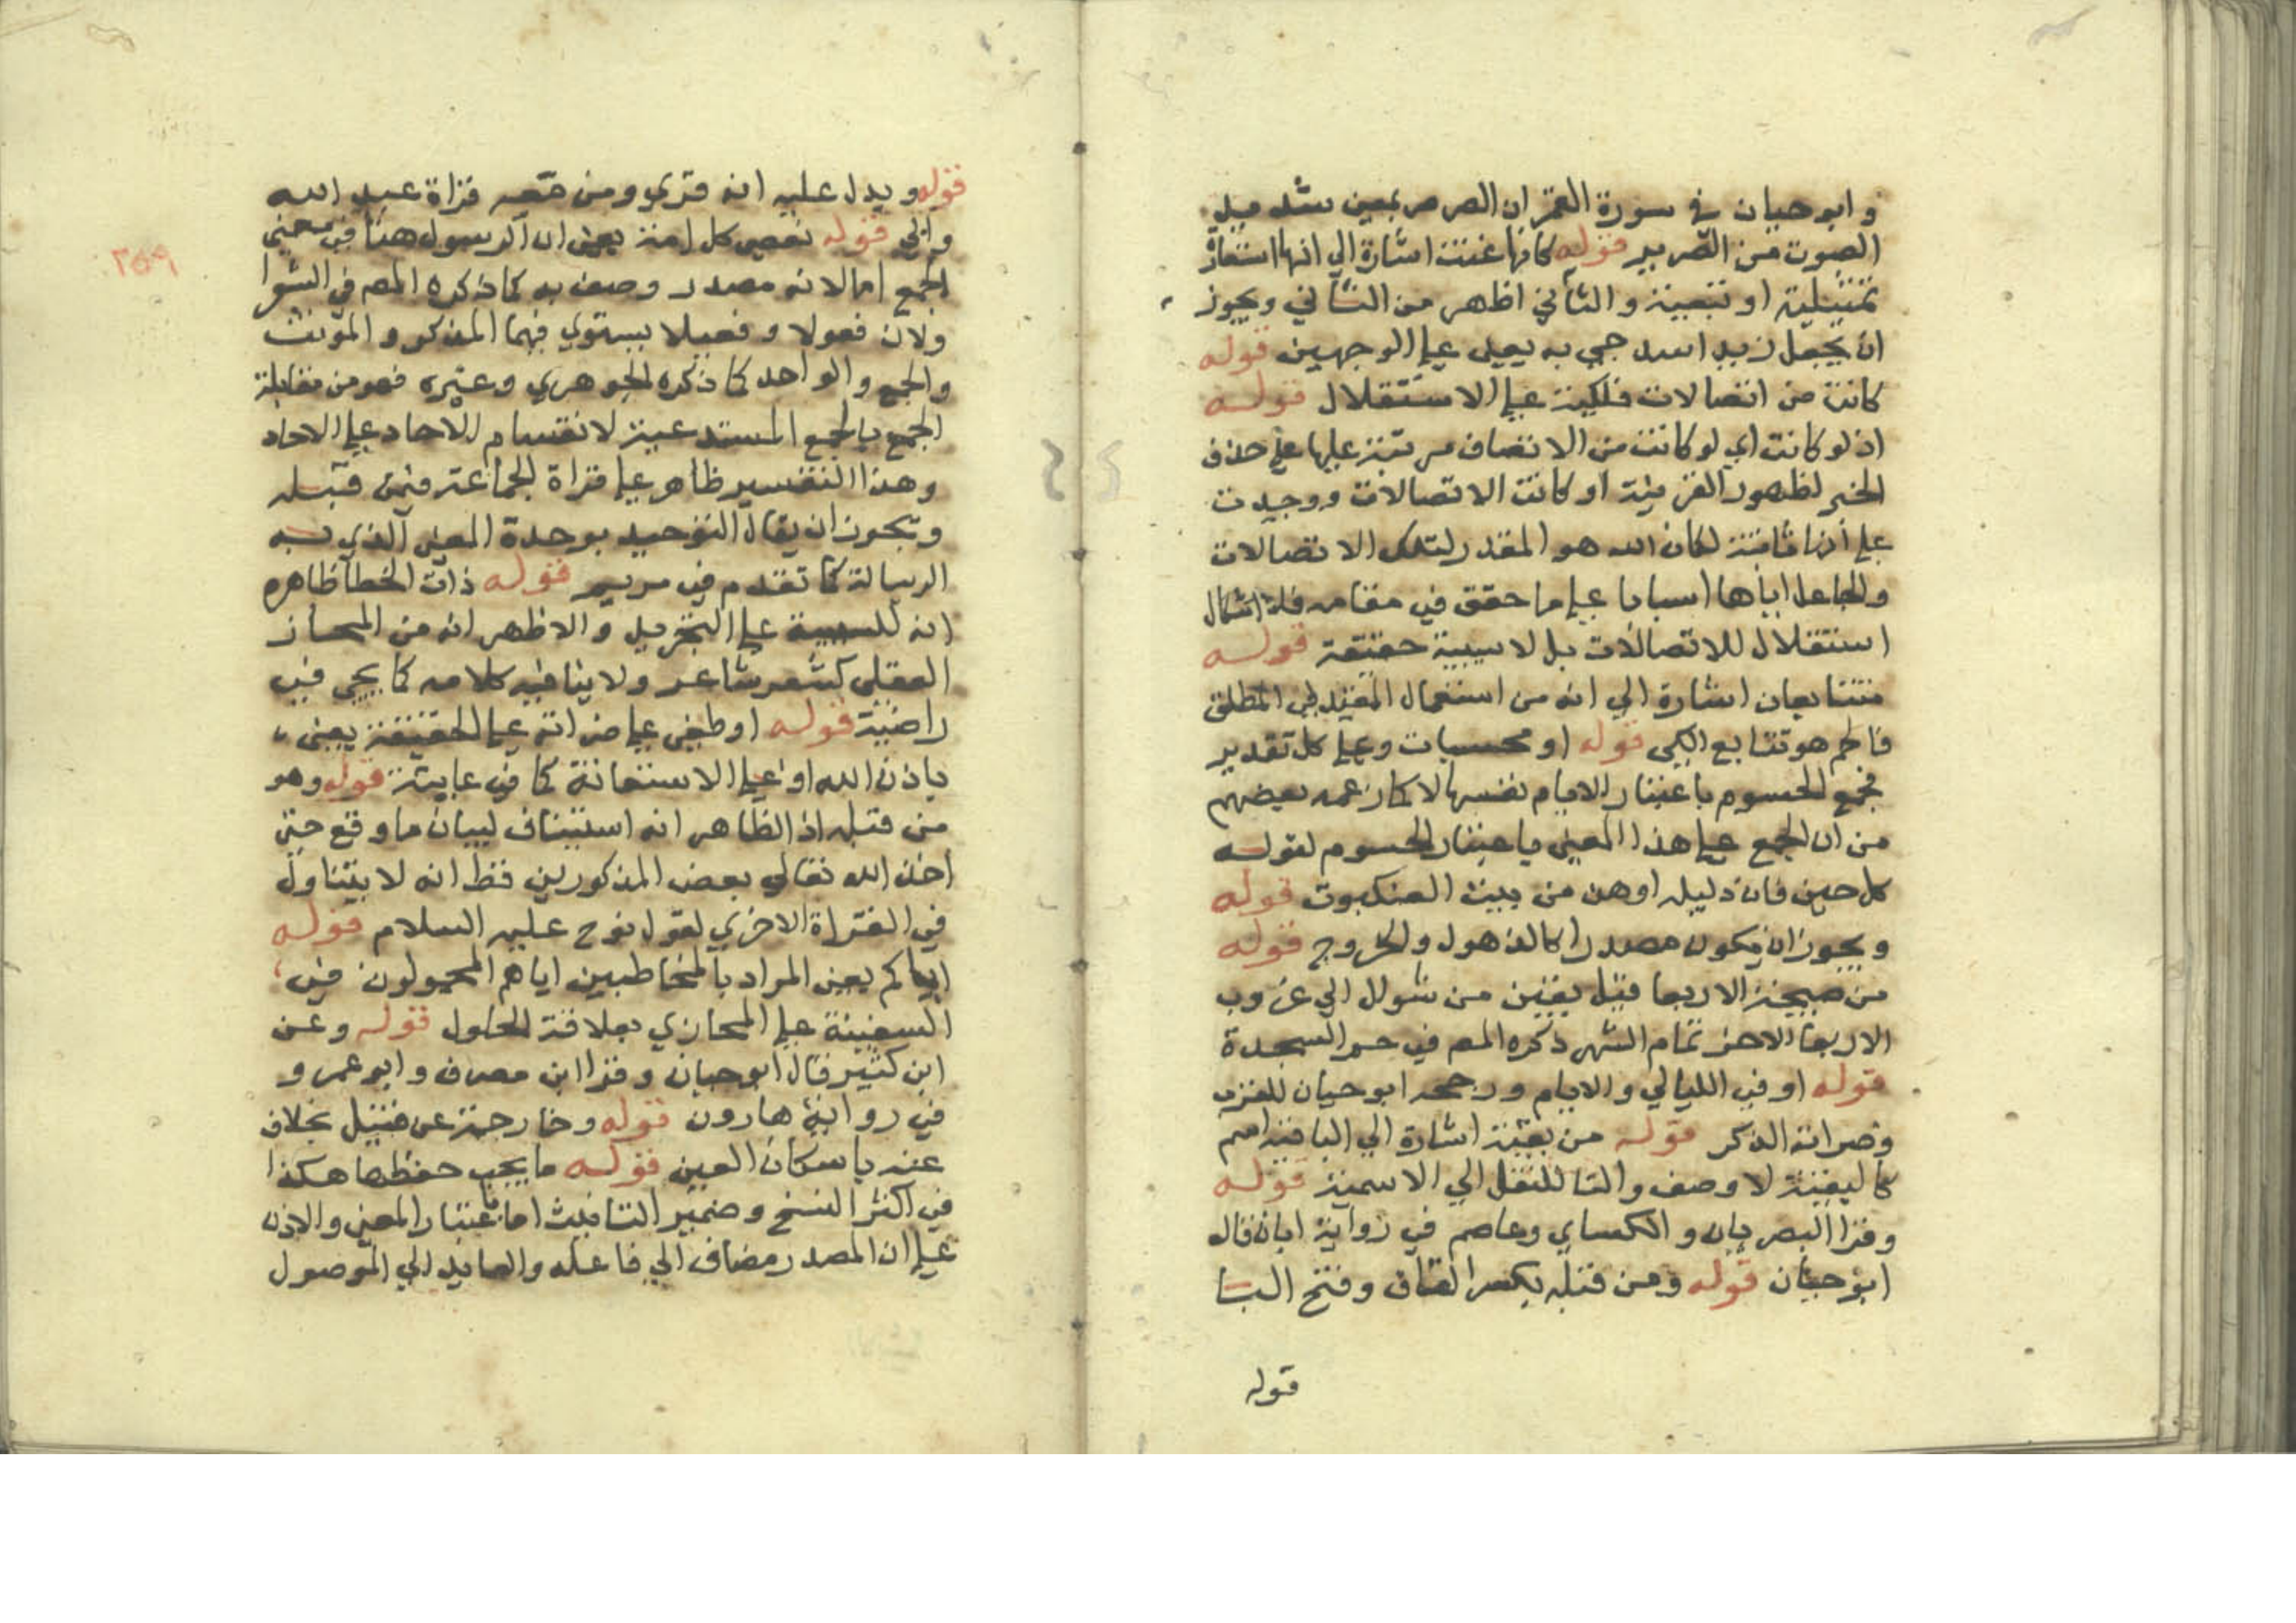 وابو حيان في سورة القمر ان الصرصر بمعنى شديد
الصوت من الصرير قوله كانها عتت اشارة الي انها استعارة
تمثيلية او تبعية والثاني اظهر من الثاني ويجوز
ان يجعل زيد اسد جي به يعني علي الوجهين قوله
كانت من اتصالات فلكية علي الاستقلال قوله
اذ لو كانت اي لو كانت من الاتصاف مرتبة عليها علي حذف
الخبر لظهور القرينة او كانت الاتصالات ووجدت
علي انها ثابتة لكان الله هو المقدر لتلك الاتصالات
والجاعل اياها اسبابا علي ما حقق في مقامه فلا اشكال
استقلال للاتصالات بل لا سببية حقيقة قوله
متتابعات اشارة الي انه من استعمال المقيد في المطلق
فالحسم هو تتابع الكي قوله او محسمات وعلي كل تقدير
فجمع الحسوم باعتبار الايام نفسها لا كما زعمه بعضهم
من ان الجمع علي هذا المعني باعتبار الحسوم لقوله
كل حين فان دليله اوهن من بيت العنكبوت قوله
ويجوز ان يكون مصدرا كالذهول والخروج قوله
من صبيحة الاربعا قبل يقين من شوال الي غروب
الاربعا الاخر تمام الشهر ذكره المص في حم السجدة
قوله او في الليالي والايام ورجحه ابو حيان للقرب
وصراته الذكر قوله من بقية اشارة الي الباقية اسم
كالبقية لا وصف والتا للنقل الي الاسمية قوله
وقرا البصريان والكساي وعاصم في رواية ابان قاله
ابو حيان قوله ومن قبله بكسر القاف وفتح البا
قوله
قوله ويدل عليه انه قري ومن معه قراة عبد الله
وابي قوله فعصى كل امة يعني ان الرسول هنا في معني
الجمع اما لانه مصدر وصف به كما ذكره المص في الشعرا
ولان فعولا وفعيلا يستوي فيهما المذكر والمؤنث
والجمع والواحد كما ذكره الجوهري وغيره فهو من مقابلة
الجمع بالجمع المستدعية لانقسام الاحاد علي الاحاد
وهذا التفسير ظاهر علي قراة الجماعة فمن قبله
ويجوز ان يقال التوحيد بوحدة المعني الذي به
الرسالة كما تقدم في مريم قوله ذات الخطا ظاهره
انه للنسبة علي التجريد والاظهر انه من المجاز
العقلي كشعر شاعر ولا ينافيه كلامه كما يجي في
راضية قوله او طغى علي خزانه علي الحقيقة يعني
باذن الله او علي الاستعانة كما في عاتية قوله وهو
من قبله اذ الظاهر انه استيناف لبيان ما وقع حين
اخذ الله تعالي بعض المذكورين فقط انه لا يتناول
في القراة الاخري لقول نوح عليه السلام قوله
اباكم يعني المراد بالمخاطبين اباهم المحمولون في
السفينة علي المجازي بعلاقة الحلول قوله وعن
ابن كثير قال ابو حيان وقرا ابن مصرف وابو عمرو
في رواية هارون قوله وخارجة عن قنبل بخلاف
عنه باسكان العين قوله ما يجب حفظها هكذا
في اكثر النسخ وضمير التانيث اما باعتبار المعني والاذن
علي ان المصدر مضاف الي فاعله والعايد الي الموصول
٢٥٩